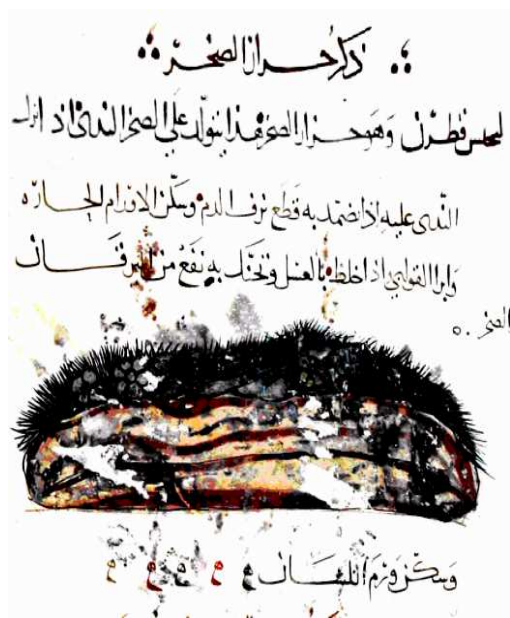 ذكر حزاز الصخر
ليحس قطرن وهو حزاز الصخر هذا يتولد على الصخر الندى اذا نزل
الندى عليه اذا تضمد به قطع نزف الدم وسكن الاورام الحارة
وابرا القوابي اذا خلط بالعسل وتحنك به نفع من اليرقان
الصخر
وسكن ورم اللسان